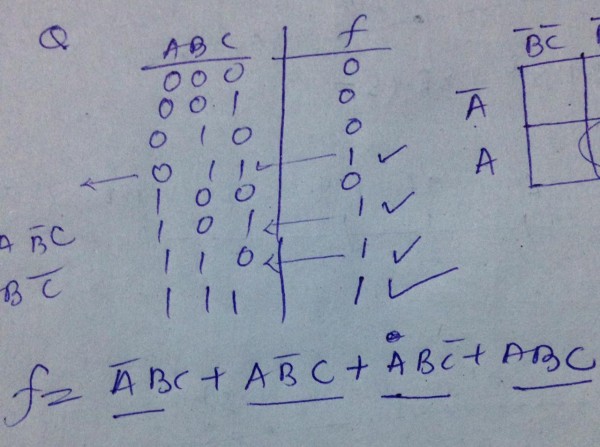 Q
A B C f
0 0 0 0
0 0 1 0
0 1 0 0
0 1 1 1
1 0 0 0
1 0 1 1
1 1 0 1
1 1 1 1
B̅C̅
A̅
A
A B̅C
B C̅
f = A̅BC + AB̅C + ABC̅ + ABC